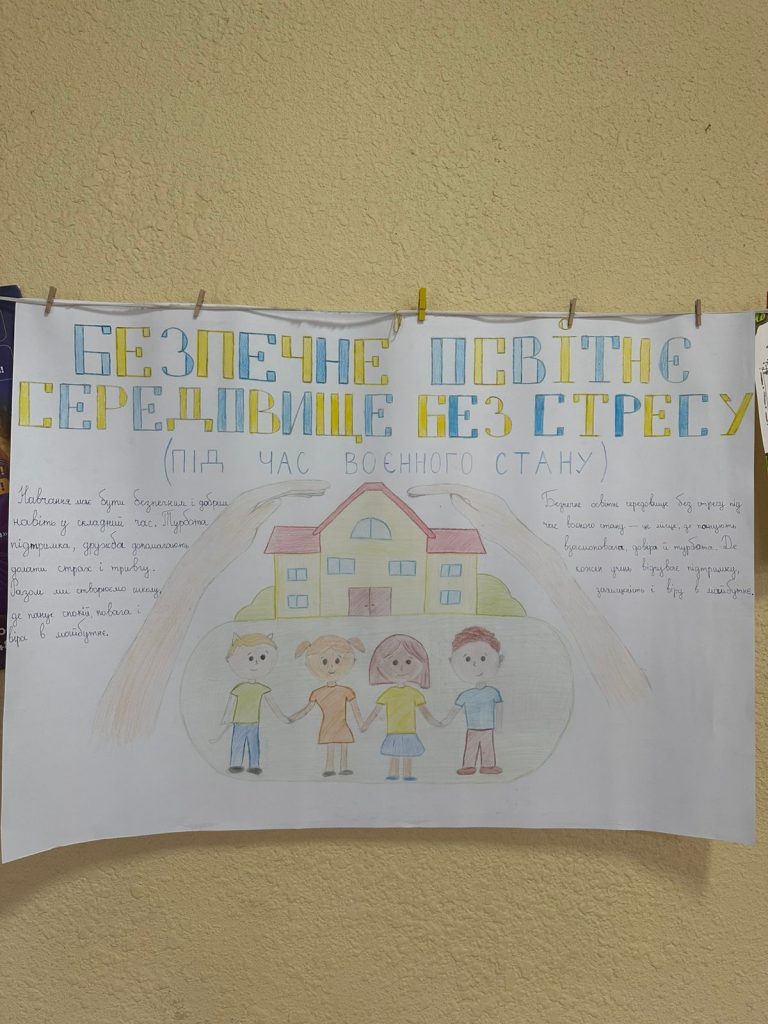 БЕЗПЕЧНЕ ОСВІТНЄ
СЕРЕДОВИЩЕ БЕЗ СТРЕСУ
(ПІД ЧАС ВОЄННОГО СТАНУ)
Навчання має бути безпечним і добрим
навіть у складний час. Турбота,
підтримка, дружба допомагають
долати страх і тривогу.
Разом ми створюємо школу,
де панує спокій, повага і
віра в майбутнє.
Безпечне освітнє середовище без стресу під
час воєнного стану – це місце, де панують
взаємоповага, довіра й турбота. Де
кожен учень відчуває підтримку,
захищеність і віру в майбутнє.